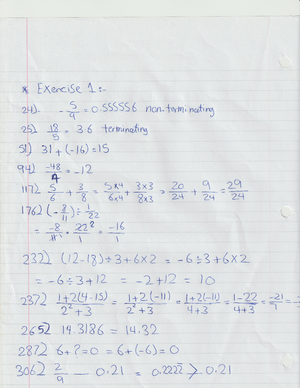 * Exercise 1:-
24). - 5/9 = 0.555556 non-terminating
25) 18/5 = 3.6 terminating
51) 31 + (-16) = 15
94) -48/4 = -12
117) 5/6 + 3/8 = 5×4/6×4 + 3×3/8×3 = 20/24 + 9/24 = 29/24
176) (-8/11) ÷ 1/22
= -8/11 · 22/1 = -16/1
232) (12-18) ÷ 3 + 6×2 = -6 ÷ 3 + 6×2
= -6 ÷ 3 + 12 = -2 + 12 = 10
237) 1+2(4-15)/2²+3 = 1+2(-11)/2²+3 = 1+2(-11)/4+3 = 1-22/4+3 = -21/7
265) 14.3186 = 14.32
287) 6 + ? = 0 = 6 + (-6) = 0
306) 2/9 — 0.21 = 0.2222 > 0.21